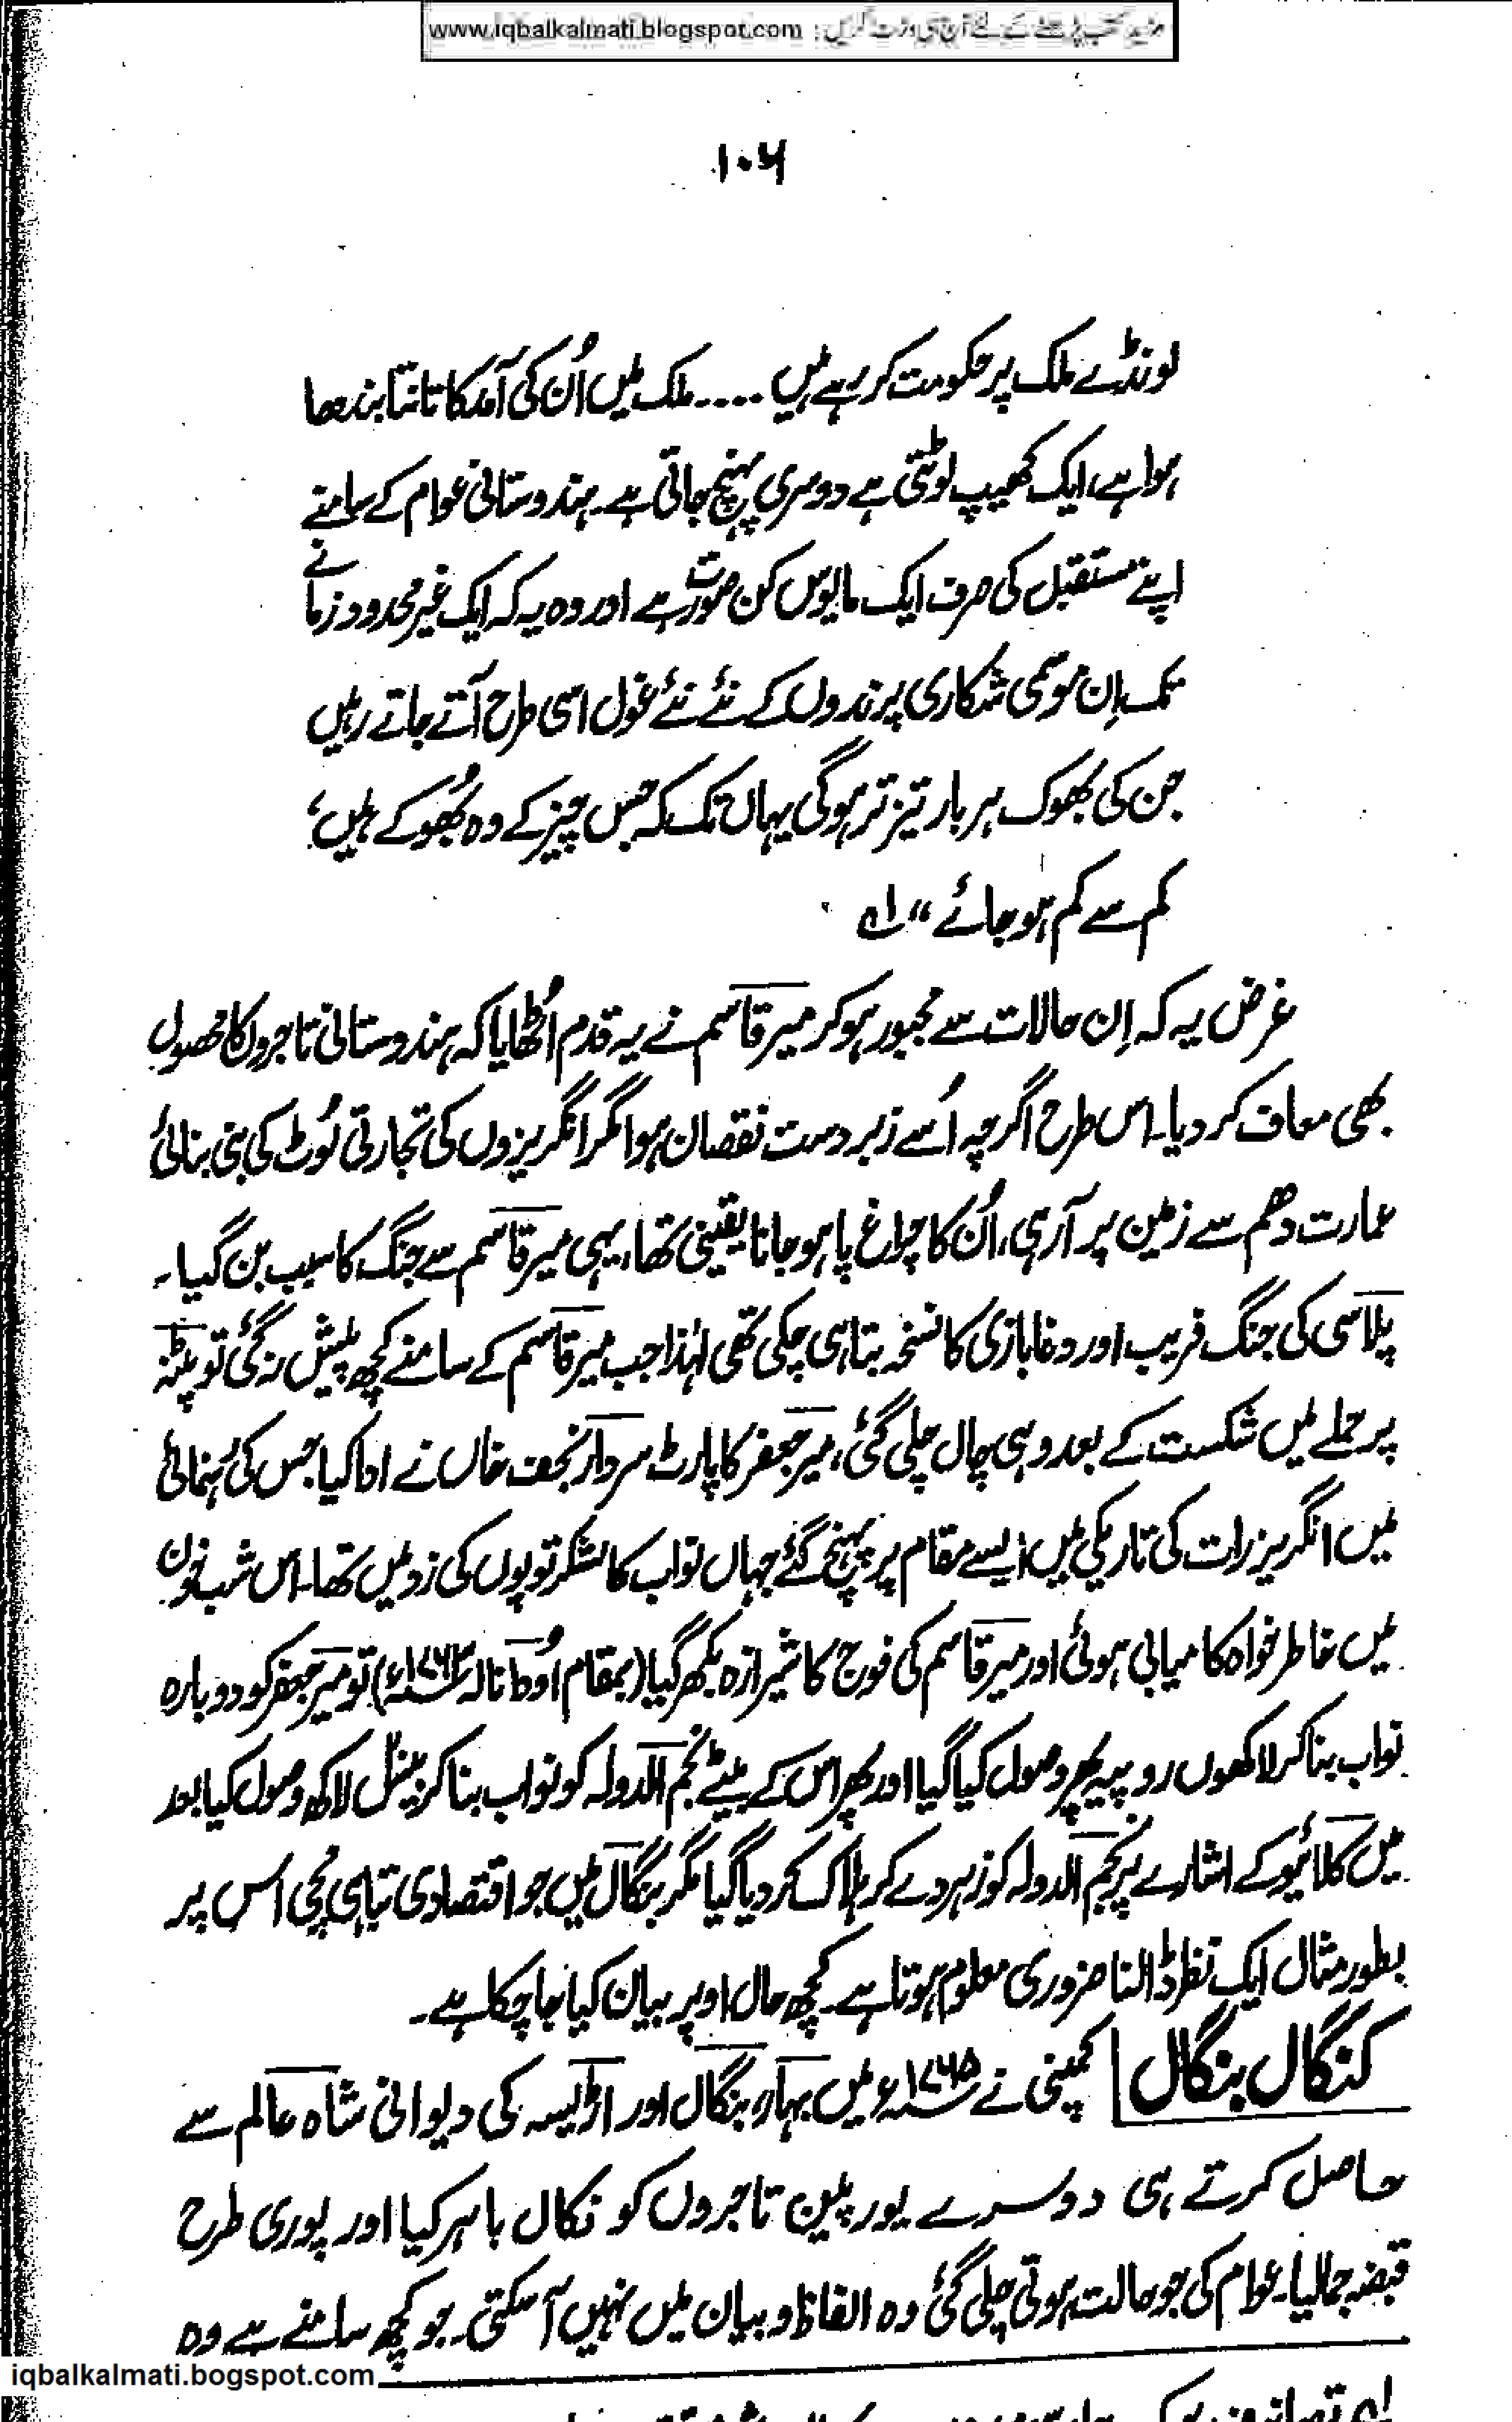 مزید کتب پڑھنے کے لئے آج ہی وزٹ کریں : www.iqbalkalmati.blogspot.com
۱۰۶
لونڈے ملک پر حکومت کر رہے ہیں ۔۔۔۔ ملک میں اُن کی آمد کا تانتا بندھا
ہوا ہے، ایک کھیپ لوٹتی ہے دوسری پہنچ جاتی ہے۔ ہندوستانی عوام کے سامنے
اپنے مستقبل کی صرف ایک مایوس کن صورت ہے اور وہ یہ کہ ایک غیر محدود زمانے
تک اِن موسمی شکاری پرندوں کے نئے نئے غول اسی طرح آتے جاتے رہیں
جن کی بھوک ہر بار تیز تر ہوگی یہاں تک کہ جس چیز کے وہ بُھوکے ہیں،
کم سے کم ہو جائے“ ؎۱
غرض یہ کہ اِن حالات سے مجبور ہو کر میر قاسم نے یہ قدم اُٹھایا کہ ہندوستانی تاجروں کا محصول
بھی معاف کر دیا۔ اس طرح اگرچہ اُسے زبردست نقصان ہوا مگر انگریزوں کی تجارتی لُوٹ کی بنی بنائی
عمارت دھم سے زمین پر آ رہی، اُن کا چراغ پا ہو جانا یقینی تھا، یہی میر قاسم سے جنگ کا سبب بن گیا۔
پلاسی کی جنگ فریب اور دغا بازی کا نسخہ بتا ہی چکی تھی لہٰذا جب میر قاسم کے سامنے کچھ پیش نہ گئی تو پٹنہ
پر حملے میں شکست کے بعد وہی چال چلی گئی، میر جعفر کا پارٹ سردار نجف خاں نے ادا کیا جس کی رہنمائی
میں انگریز رات کی تاریکی میں ایسے مقام پر پہنچ گئے جہاں نواب کا لشکر توپوں کی زد میں تھا۔ اس شب خون
میں خاطر خواہ کامیابی ہوئی اور میر قاسم کی فوج کا شیرازہ بکھر گیا (بمقام اُودا نالہ ۱۷۶۳ء) تو میر جعفر کو دوبارہ
نواب بنا کر لاکھوں روپیہ پھر وصول کیا گیا اور پھر اس کے بیٹے نجم الدولہ کو نواب بنا کر بیس لاکھ وصول کیا بعد
میں کلائیو کے اشارے پر نجم الدولہ کو زہر دے کر ہلاک کر دیا گیا مگر بنگال میں جو اقتصادی تباہی مچی اس پر
بطور مثال ایک نظر ڈالنا ضروری معلوم ہوتا ہے۔ کچھ حال اوپر بیان کیا جا چکا ہے۔
کنگال بنگال کمپنی نے ۱۷۶۵ء میں بہار، بنگال اور اڑیسہ کی دیوانی شاہ عالم سے
حاصل کرتے ہی دوسرے یورپین تاجروں کو نکال باہر کیا اور پوری طرح
قبضہ جما لیا۔ عوام کی جو حالت ہوتی چلی گئی وہ الفاظ و بیان میں نہیں آ سکتی۔ جو کچھ سامنے ہے وہ
iqbalkalmati.bogspot.com